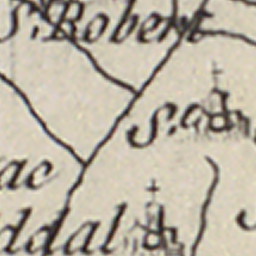 S.Robert
S.a
ac
ddal